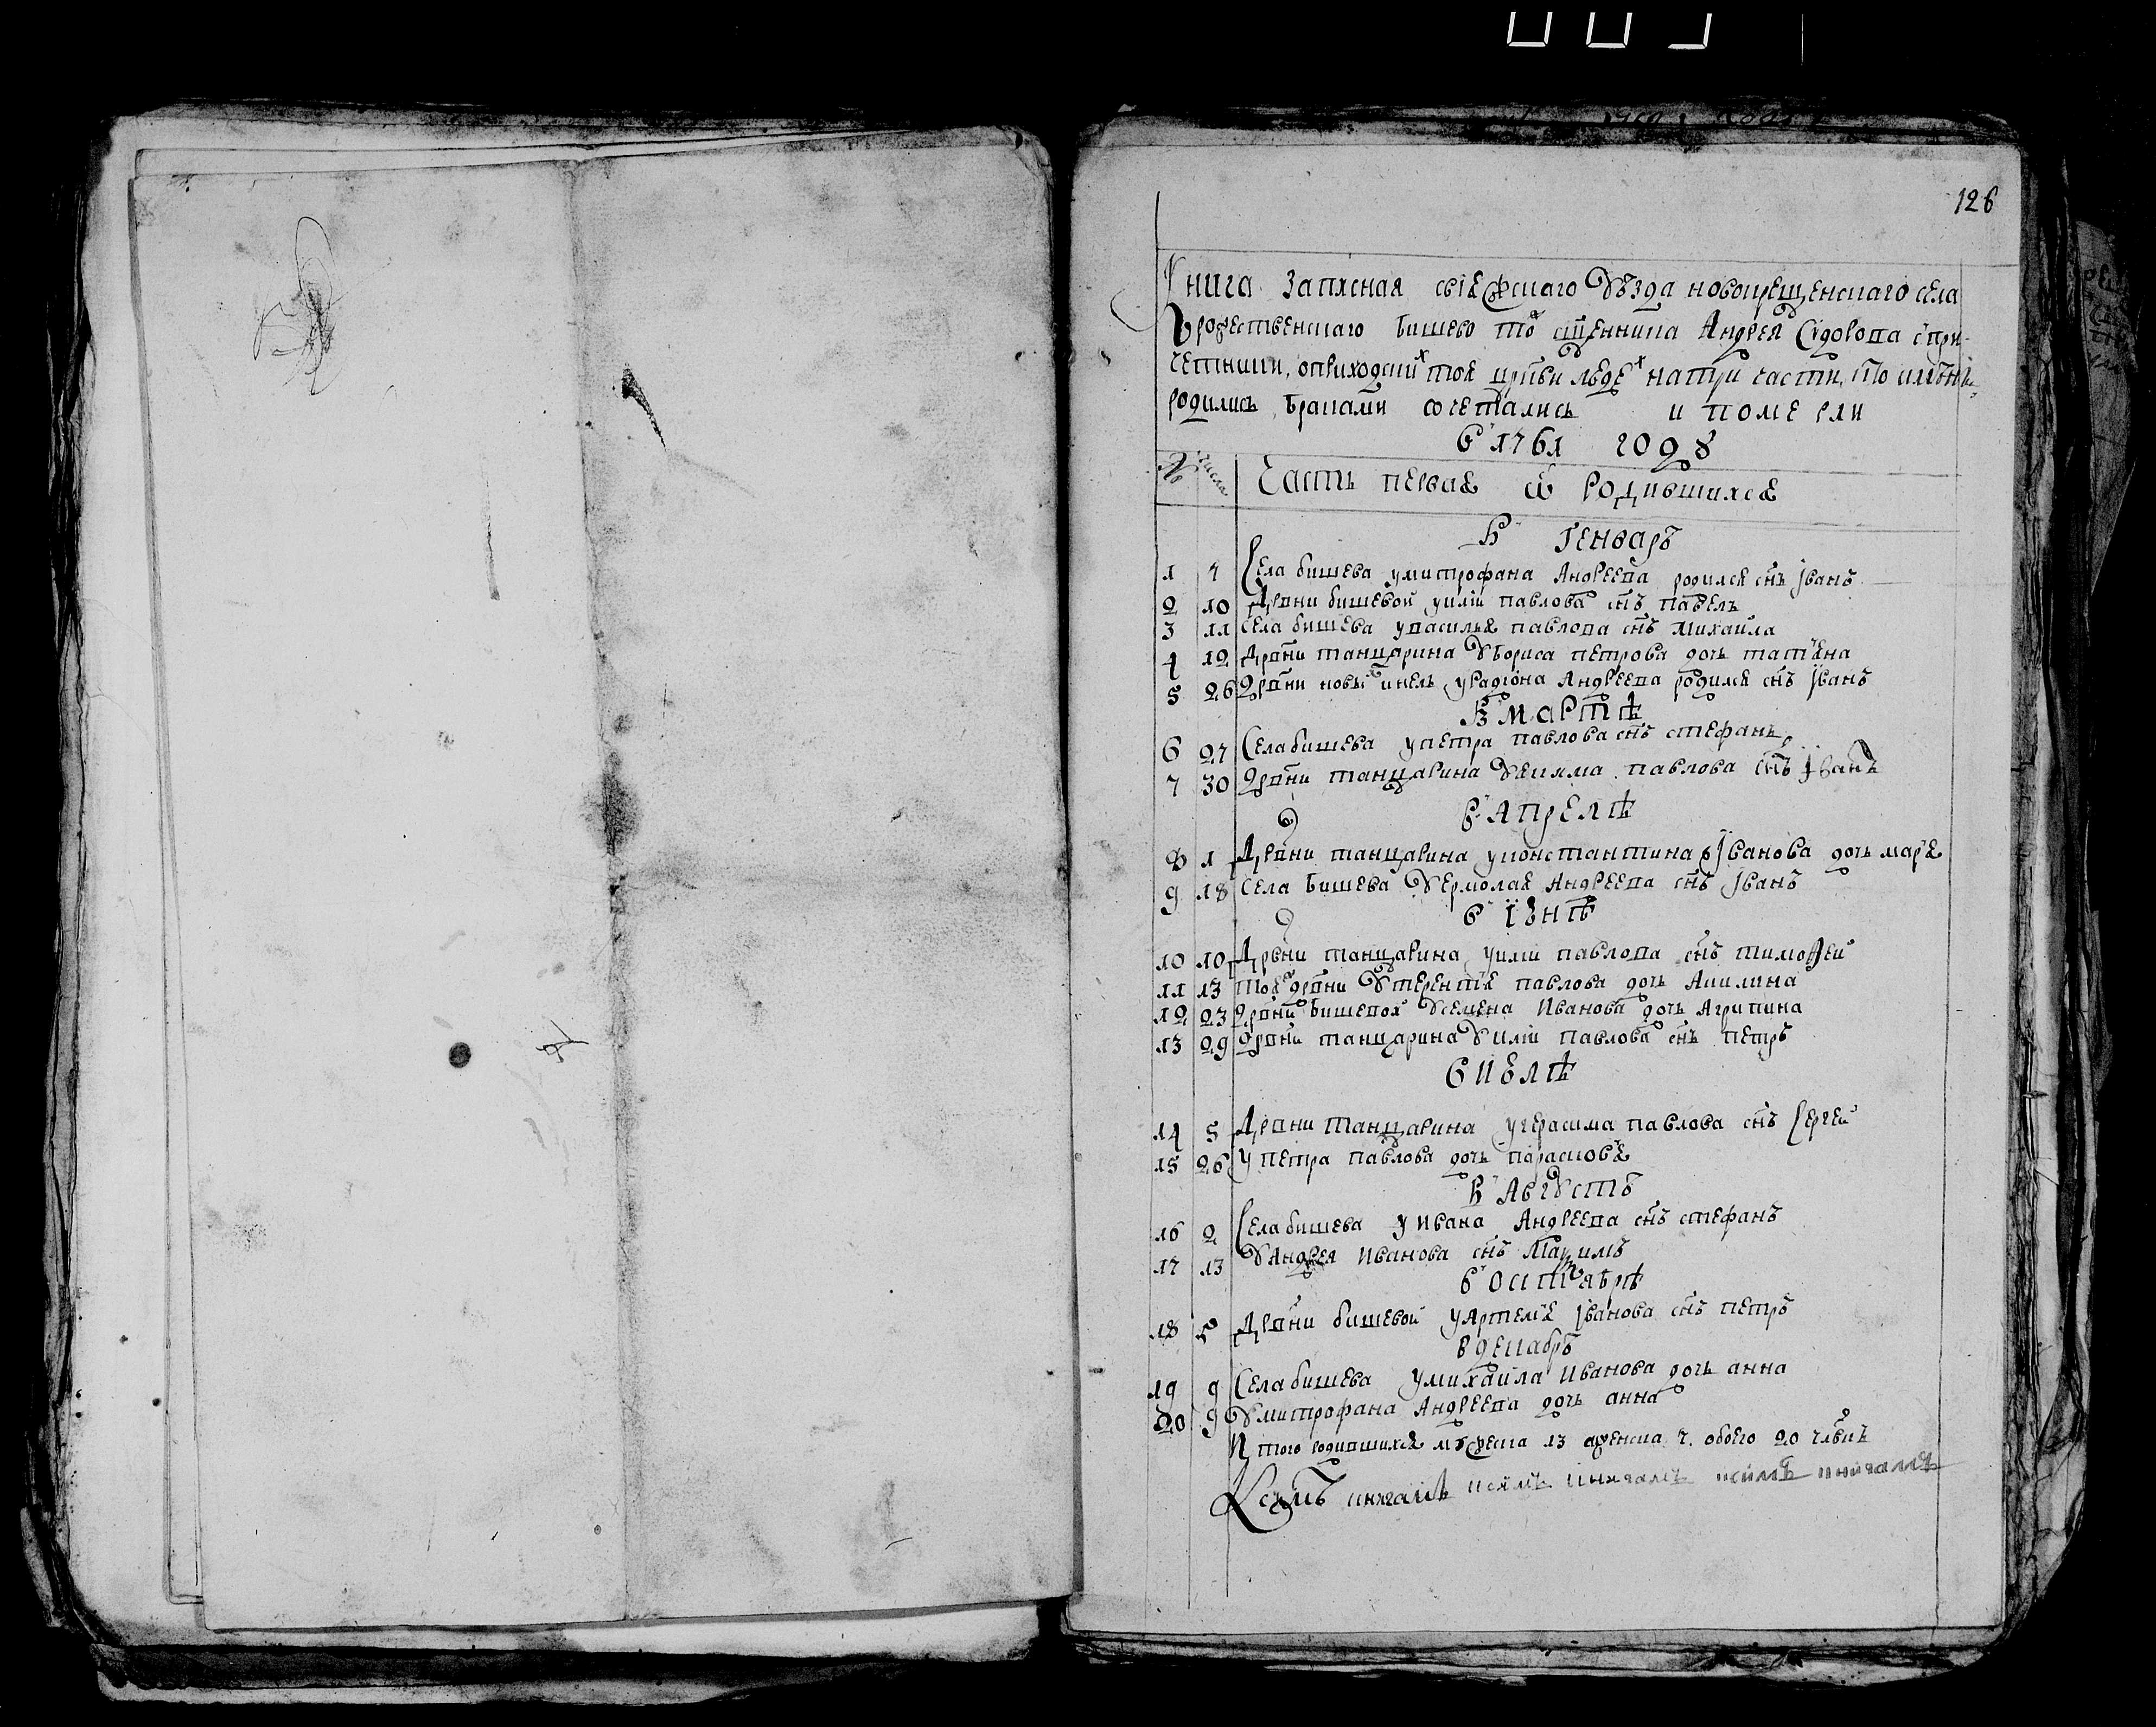 126
Книга записная свіяжскаго уѣзда новокрещенскаго села
Рожественскаго Бишево тож сщенника Андрея Сидорова с при
четники, о приходских тоя цркви людех на три части, кто имѧны
родились, браками сочетались и померли
в 1761 году
№ числа Часть первая ѡ родившихся
В Генварѣ
1 7 Села бишева у митрофана Андреева родился снъ Іванъ
2 10 Дрвни бишевой у иліи павлова снъ павелъ
3 11 села бишева у василья павлова снъ михаила
4 12 Дрвни танцарина у бориса петрова дочь татьяна
5 26 Дрвни новых инель у радіона Андреева родился снъ Іванъ
В Мартѣ
6 27 Села бишева у петра павлова снъ стефанъ
7 30 Дрвни танцарина у екима павлова снъ Іванъ
в Апрелѣ
8 1 Дрвни танцарина у константина Іванова дочь марья
9 18 Села бишева у Ермолая Андреева снъ Іванъ
в Іюнѣ
10 10 Дрвни танцарина у иліи павлова снъ тимоѳей
11 13 тояж дрвни у терентья павлова дочь Акилина
12 23 Дрвни бишевой у семена Иванова дочь Агрипина
13 29 Дрвни танцарина у иліи павлова снъ петръ
в июлѣ
14 5 Дрвни танцарина у герасима павлова снъ Сергей
15 26 у петра павлова дочь парасковья
В Августѣ
16 2 Села бишева у ивана Андреева снъ стефанъ
17 13 у Андрея Иванова снъ Макимъ
в Октѧбрѣ
18 5 Дрвни бишевой у Артемья Іванова снъ петръ
в декабрѣ
19 9 Села бишева у михаила Иванова дочь анна
20 9 у митрофана Андреева дочь анна
Итого родившихся мужеска 13 женска 7. обоего 20 члвкъ
К симъ книгамъ к симъ книгамъ к симъ книгамъ